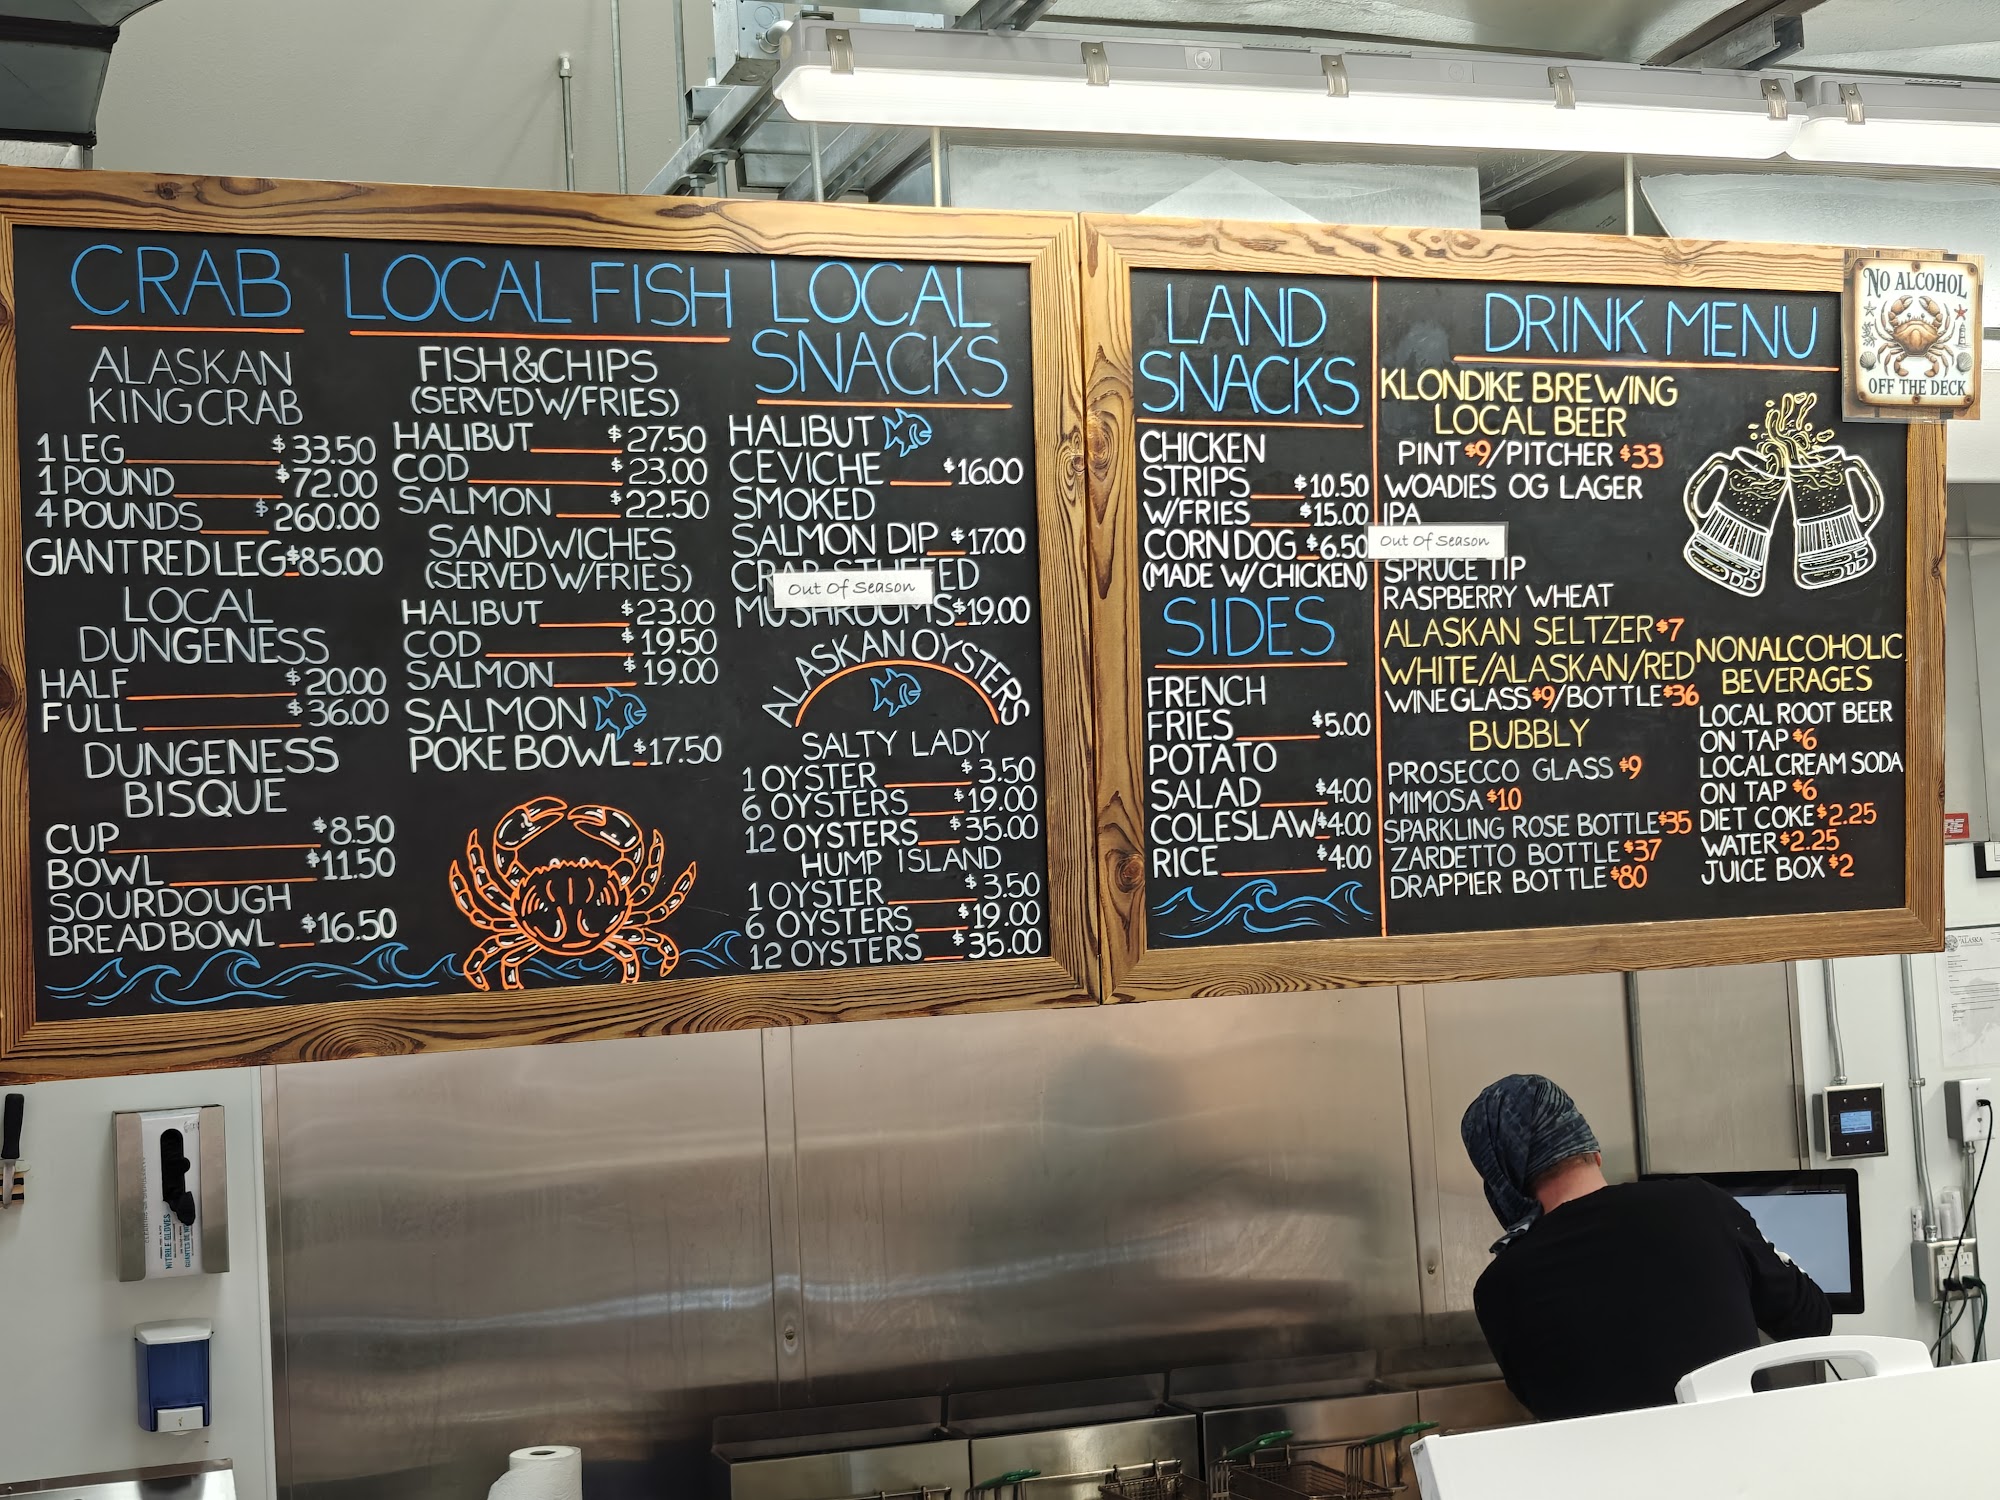 CRAB
ALASKAN
KING CRAB
1 LEG $33.50
1 POUND $72.00
4 POUNDS $260.00
GIANT RED LEG $85.00
LOCAL
DUNGENESS
HALF $20.00
FULL $36.00
DUNGENESS
BISQUE
CUP $8.50
BOWL $11.50
SOURDOUGH
BREAD BOWL $16.50
LOCAL FISH
FISH & CHIPS
(SERVED W/FRIES)
HALIBUT $27.50
COD $23.00
SALMON $22.50
SANDWICHES
(SERVED W/FRIES)
HALIBUT $23.00
COD $19.50
SALMON $19.00
SALMON
POKE BOWL $17.50
LOCAL
SNACKS
HALIBUT
CEVICHE $16.00
SMOKED
SALMON DIP $17.00
CRAB STUFFED
Out Of Season
MUSHROOMS $19.00
ALASKAN OYSTERS
SALTY LADY
1 OYSTER $3.50
6 OYSTERS $19.00
12 OYSTERS $35.00
HUMP ISLAND
1 OYSTER $3.50
6 OYSTERS $19.00
12 OYSTERS $35.00
LAND
SNACKS
CHICKEN
STRIPS $10.50
W/FRIES $15.00
CORN DOG $6.50
(MADE W/CHICKEN)
SIDES
FRENCH
FRIES $5.00
POTATO
SALAD $4.00
COLESLAW $4.00
RICE $4.00
DRINK MENU
KLONDIKE BREWING
LOCAL BEER
PINT $9/PITCHER $33
WOADIES OG LAGER
IPA
Out Of Season
SPRUCE TIP
RASPBERRY WHEAT
ALASKAN SELTZER $7
WHITE/ALASKAN/RED
WINE GLASS $9/BOTTLE $36
BUBBLY
PROSECCO GLASS $9
MIMOSA $10
SPARKLING ROSE BOTTLE $35
ZARDETTO BOTTLE $37
DRAPPIER BOTTLE $80
NONALCOHOLIC
BEVERAGES
LOCAL ROOT BEER
ON TAP $6
LOCAL CREAM SODA
ON TAP $6
DIET COKE $2.25
WATER $2.25
JUICE BOX $2
NO ALCOHOL
OFF THE DECK
NITRILE GLOVES